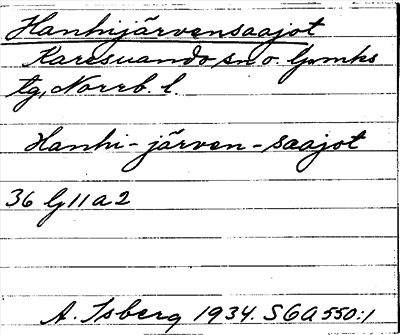 Hanhijärvensaajot
Karesuando sn o. lpmks
tg, Norrb. l.
Hanhi-järven-saajot
36 G 11 a 2
A. Isberg 1934. S 6 A 550:1